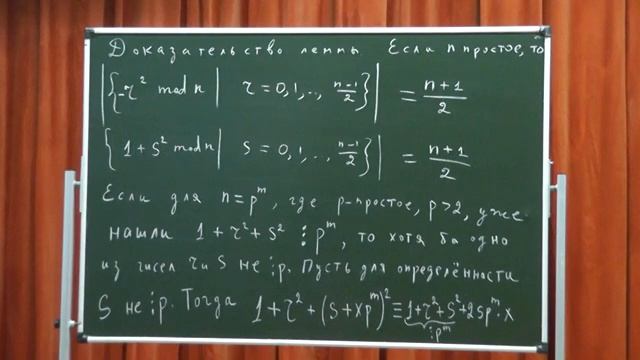 Доказательство леммы Если n простое, то
|{-r² mod n | r = 0,1,.., n-1/2}| = n+1/2
{1+s² mod n | s = 0,1,.., n-1/2}| = n+1/2
Если для n=pᵐ, где p-простое, p>2, уже
нашли 1+r²+s² ⋮ pᵐ, то хотя бы одно
из чисел r и s не ⋮p. Пусть для определённости
s не ⋮p. Тогда 1+r²+(s+xpᵐ)² ≡ 1+r²+s²+2spᵐ·x
⋮pᵐ